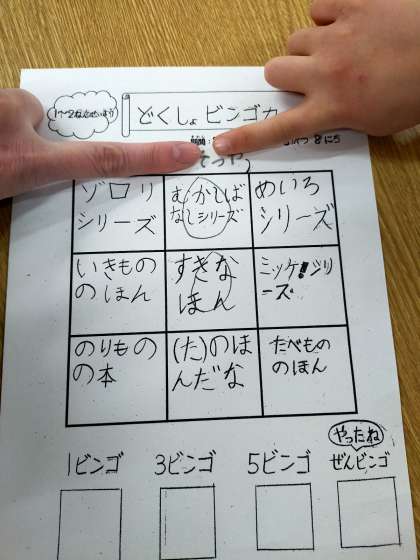 どくしょビンゴカ
8にち
ゾロリ
シリーズ
むかしば
なしシリーズ
めいろ
シリーズ
いきもの
のほん
すきな
ほん
ミッケ!シリ
ーズ
のりもの
の本
(た)のほ
んだな
たべもの
のほん
やったね
1ビンゴ
3ビンゴ
5ビンゴ
ぜんビンゴ